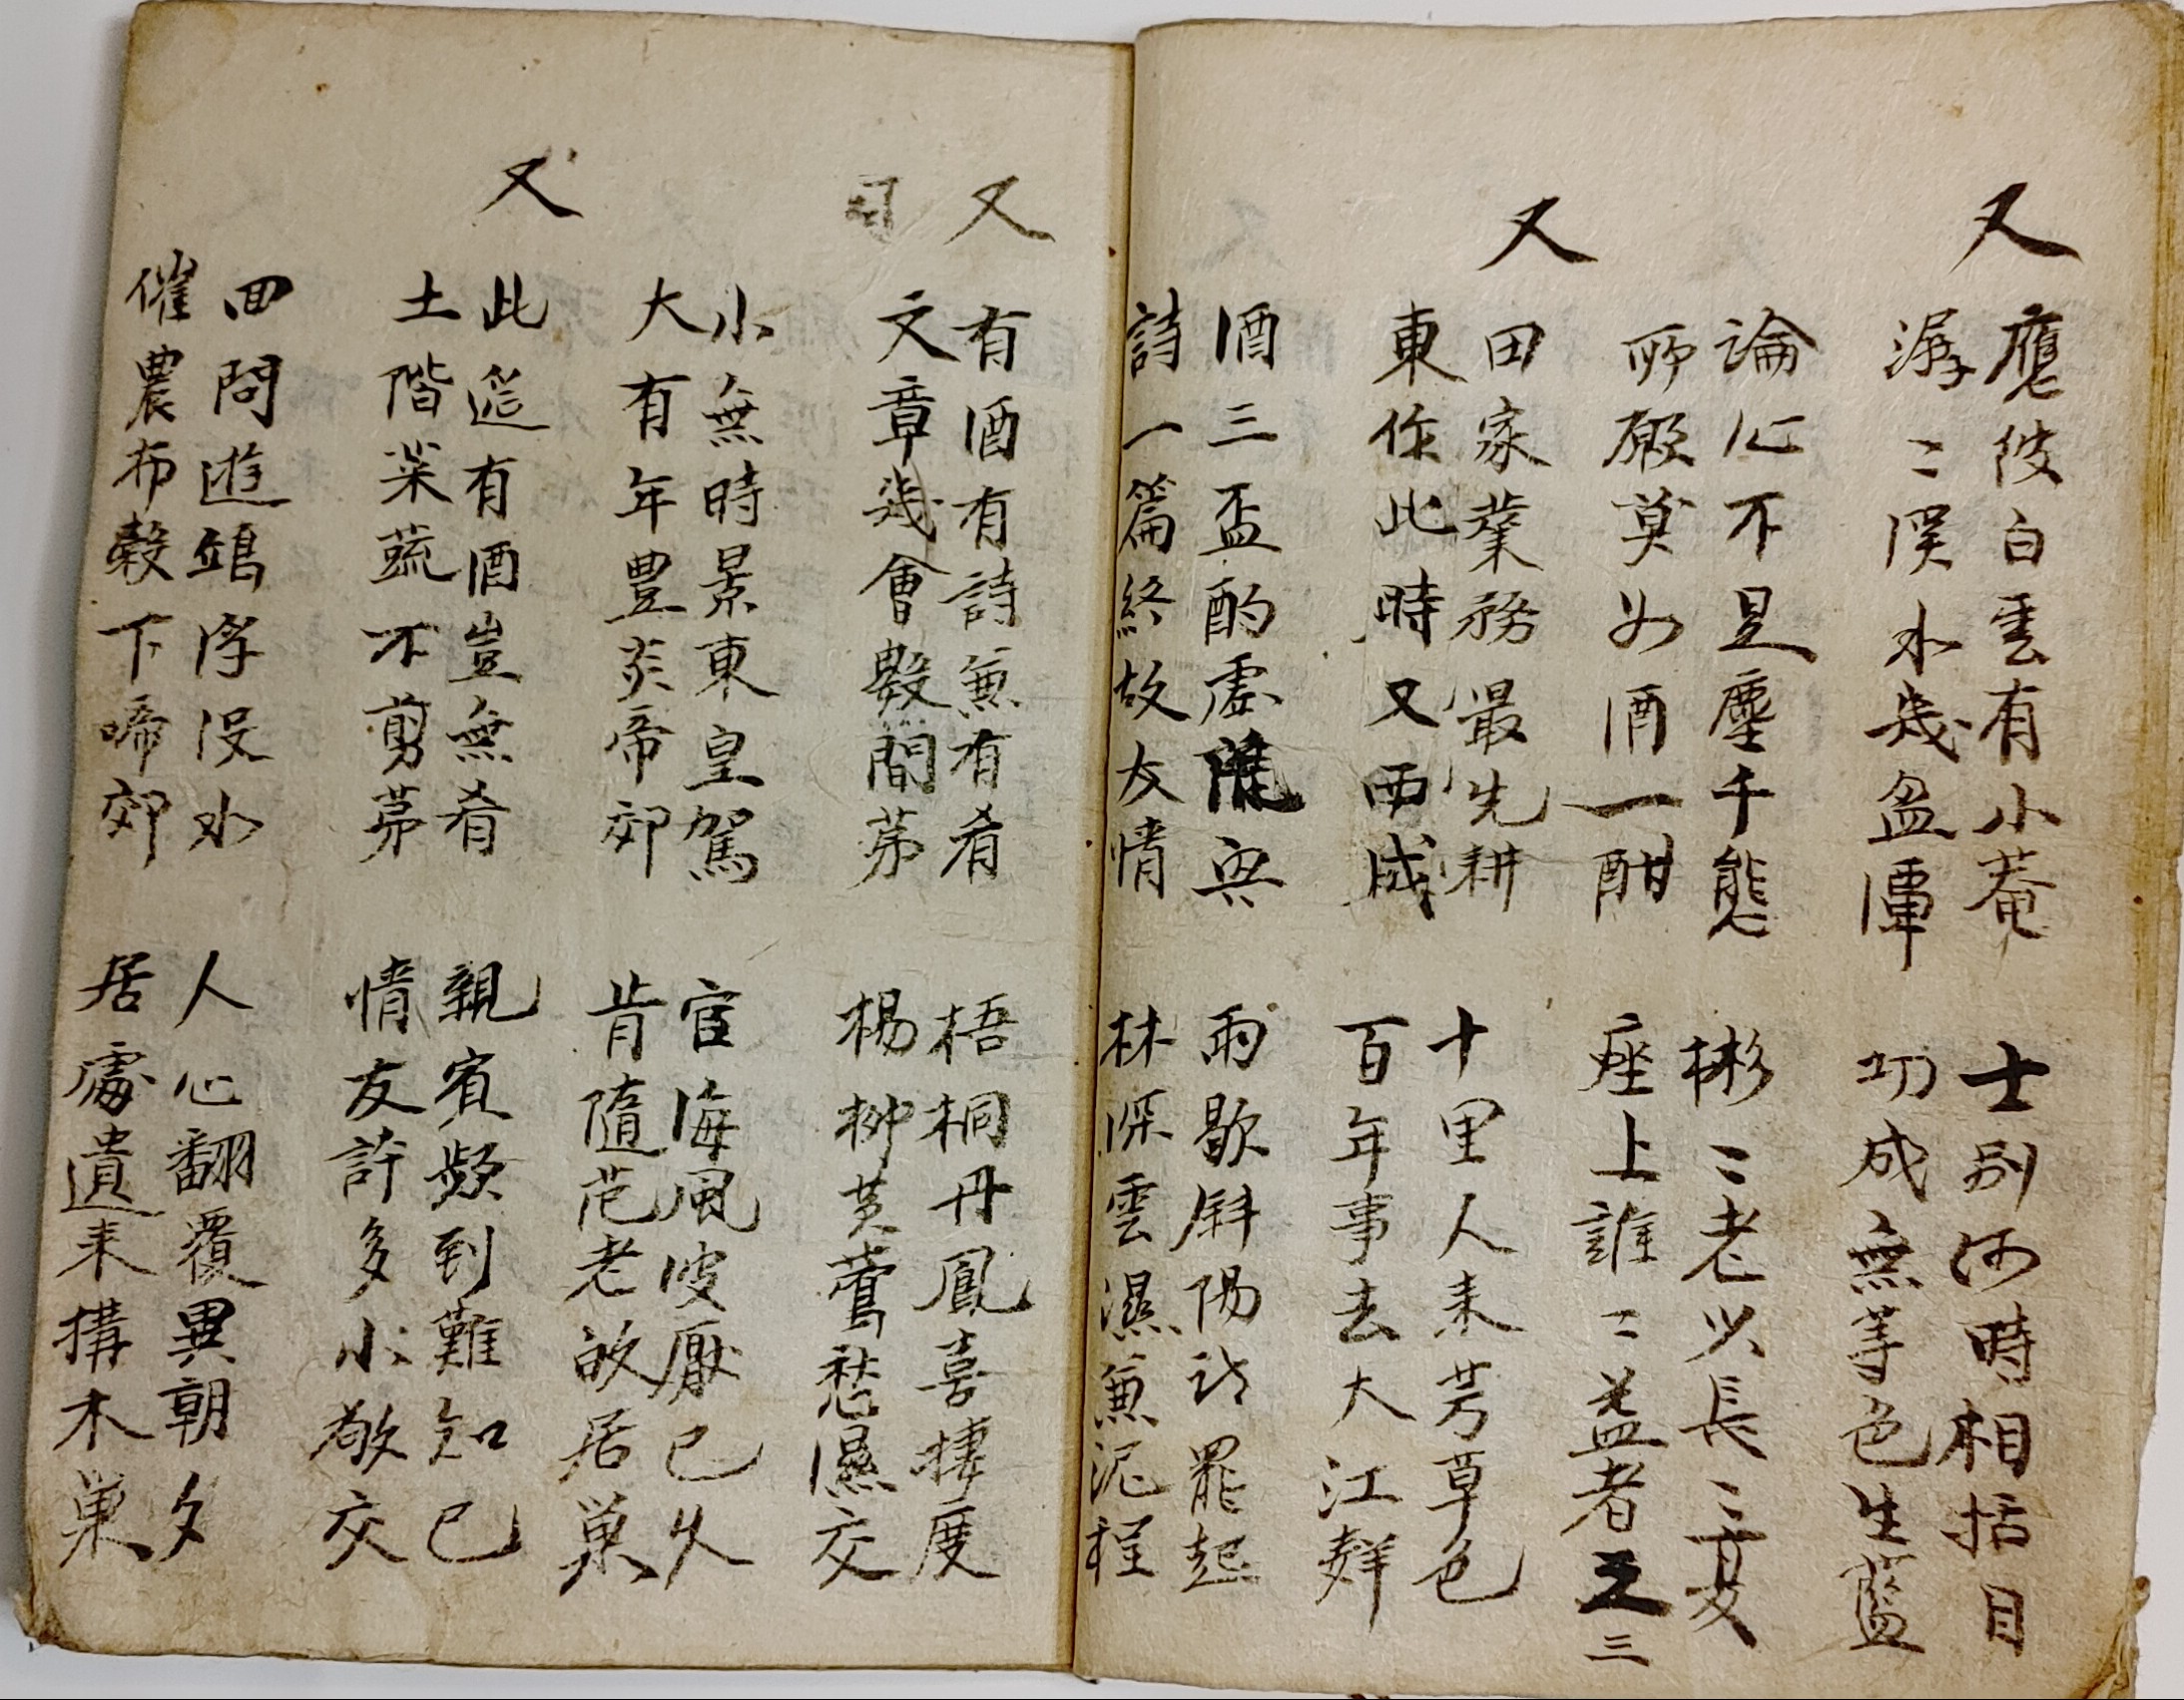 又
應彼白雲有小菴 士別何時相括目
潺〻溪水幾盈潭 功成無等色生藍
論心不是塵千態 彬〻老少長三夏
所願莫如酒一酣 座上誰〻益者三
又
田家業務最先耕 十里人来芳草色
東作此時又西成 百年事去大江鮮
酒三盃酌虛隨興 雨歇斜陽訪罷起
詩一篇終故友情 林深雲濕兼泥程
又
有酒有詩兼有肴 梧桐丹鳳喜捿度
文章幾會數間茅 楊柳黃鶯愁濕交
小無時景東皇駕 宦海風波厭已久
大有年豊炎帝郊 肯隨范老故居巢
又
此筵有酒豈無肴 親賓頻到難知己
土階菜蔬不剪茅 情友許多小敬交
回問遊鴣浮沒水 人心翻覆異朝夕
催農布穀下啼郊 居處遺来搆木巢